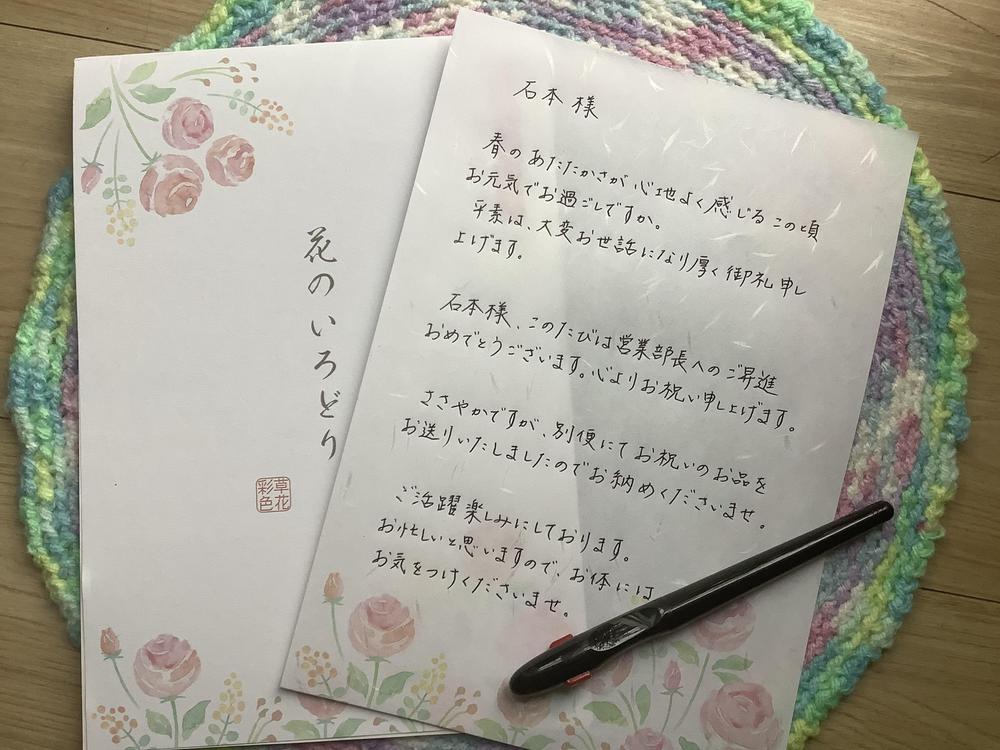 花のいろどり
草花
彩色
石本 様
春のあたたかさが心地よく感じるこの頃
お元気でお過ごしですか。
平素は、大変お世話になり厚く御礼申し
上げます。
石本様、このたびは営業部長へのご昇進
おめでとうございます。心よりお祝い申し上げます。
ささやかですが、別便にてお祝いのお品を
お送りいたしましたのでお納めくださいませ。
ご活躍楽しみにしております。
お忙しいと思いますので、お体には
お気をつけくださいませ。